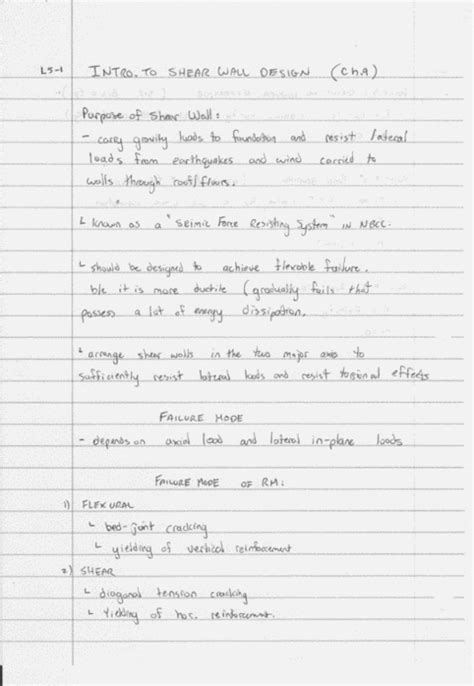 L5-1 INTRO. TO SHEAR WALL DESIGN (Ch.9)
Purpose of Shear Wall:
- carry gravity loads to foundation and resist lateral
loads from earthquakes and wind carried to
walls through roof/floors.
└ known as a "Seimic Force Resisting System" in NBCC.
└ should be designed to achieve flexable failure.
b/c it is more ductile (gradually fails that
possess a lot of energy dissipation.
└ arrange shear walls in the two major axis to
sufficiently resist lateral loads and resist torsional effects
FAILURE MODE
- depends on axial load and lateral in-plane loads
FAILURE MODE OF RM:
1) FLEXURAL
└ bed-joint cracking
└ yielding of vertical reinforcement
2) SHEAR
└ diagonal tension cracking
└ Yielding of hor. reinforcement.